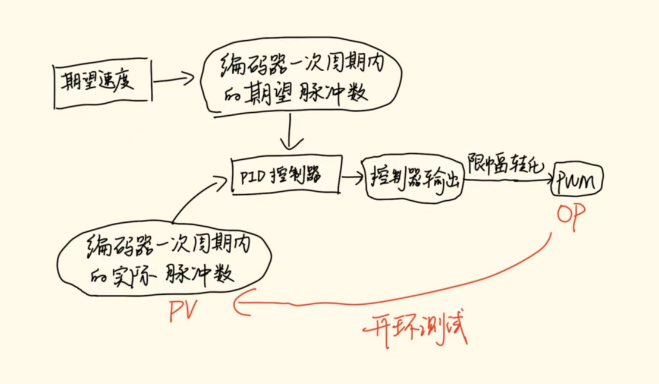 期望速度
编码器一次周期内
的期望脉冲数
PID控制器
控制器输出
限幅转化
PWM
OP
编码器一次周期内
的实际脉冲数
PV
开环测试